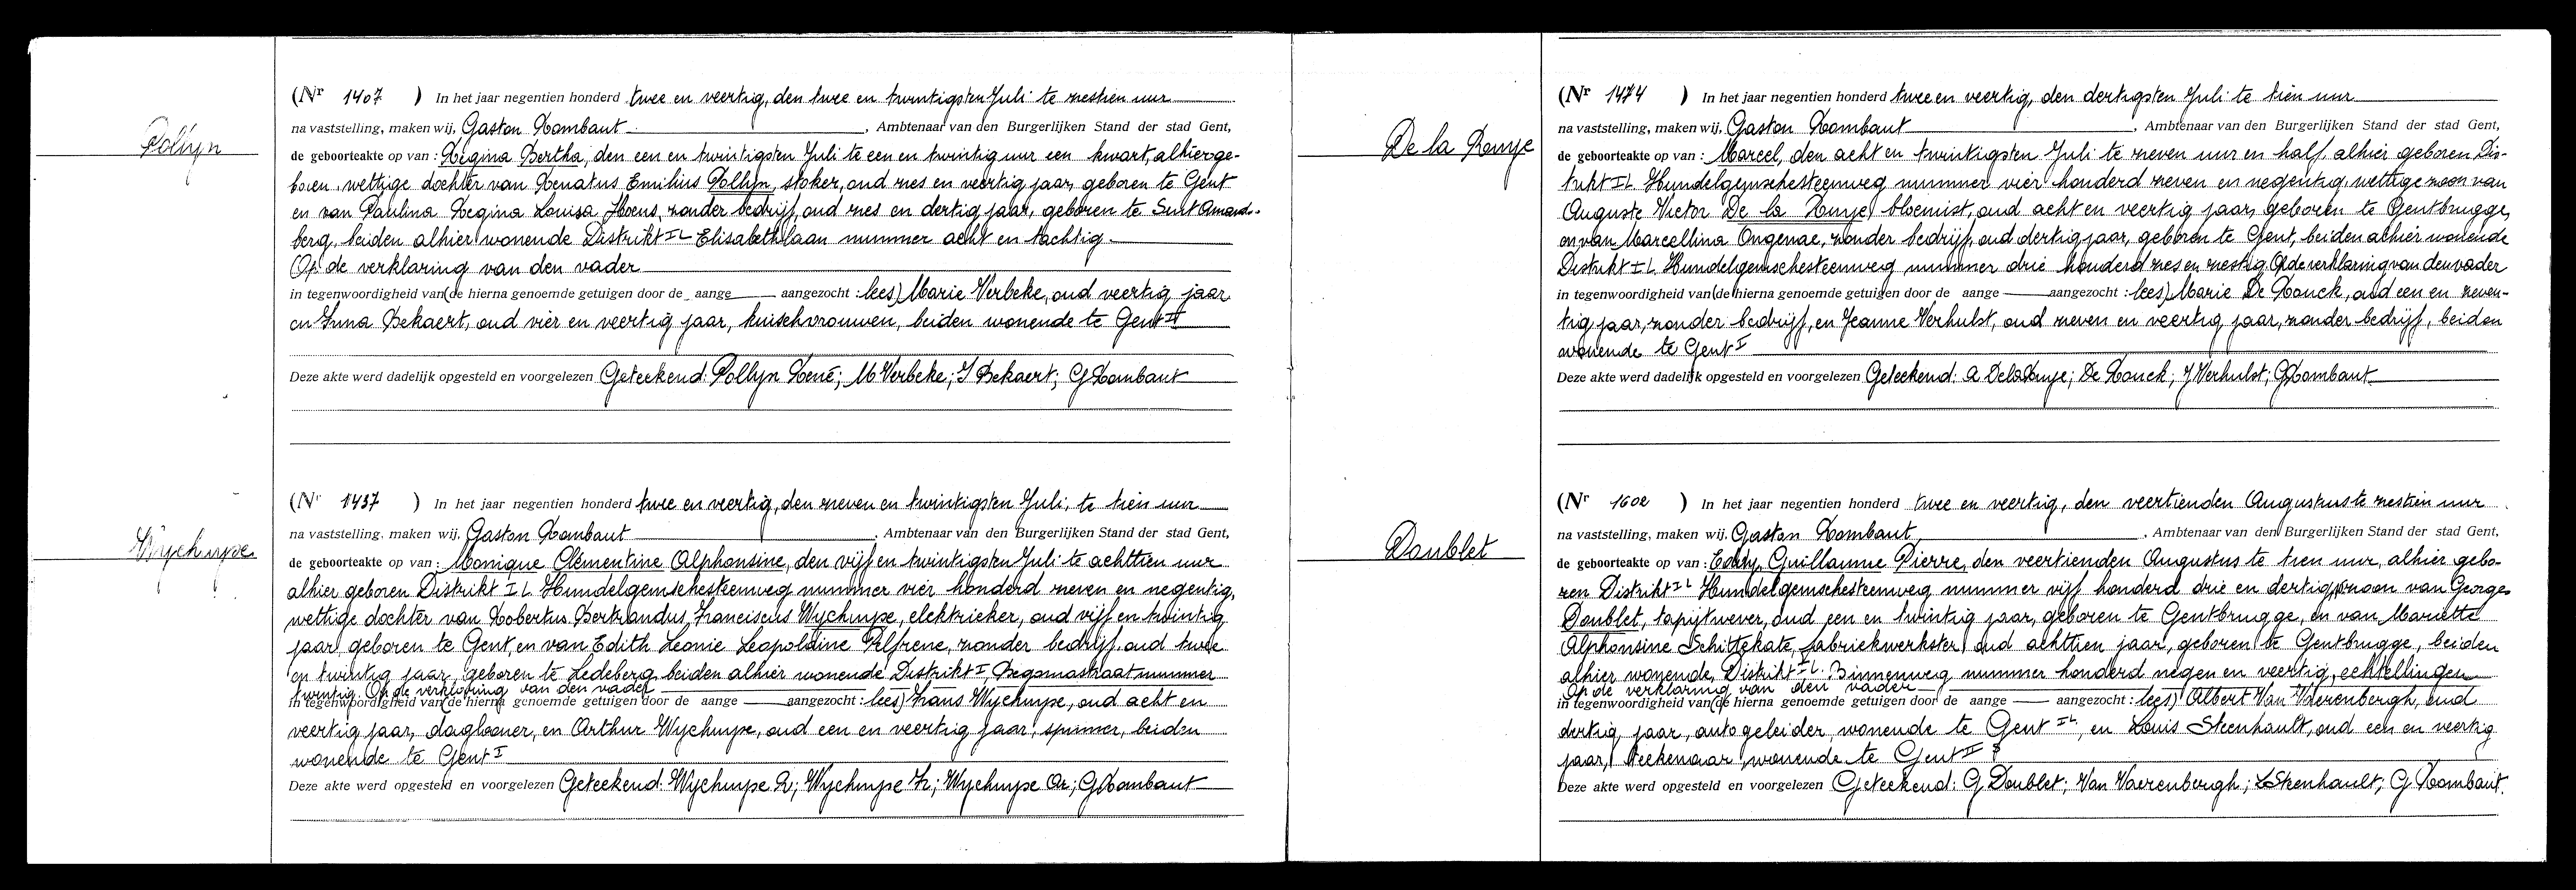 Pollyn
(Nr 1407 ) In het jaar negentien honderd twee en veertig, den twee en twintigsten Juli te zestien uur
na vaststelling, maken wij, Gaston Rombaut , Ambtenaar van den Burgerlijken Stand der stad Gent,
de geboorteakte op van : Regina Bertha, den een en twintigsten Juli te een en twintig uur een kwart, alhier ge-
boren, wettige dochter van Renatus Emilius Pollyn, stoker, oud zes en veertig jaar, geboren te Gent
en van Paulina Regina Louisa Hoens, zonder bedrijf, oud zes en dertig jaar, geboren te Sint Amands-
berg, beiden alhier wonende Distrikt IL Elisabethlaan nummer acht en tachtig.
Op de verklaring van den vader
in tegenwoordigheid van (de hierna genoemde getuigen door de aange aangezocht : lees) Marie Verbeke, oud veertig jaar
en Irma Bekaert, oud vier en veertig jaar, kuischvrouwen, beiden wonende te Gent II
Deze akte werd dadelijk opgesteld en voorgelezen Geteekend: Pollyn René; M Verbeke; I Bekaert; G Rombaut
Wychuyse
(Nr 1437 ) In het jaar negentien honderd twee en veertig, den zeven en twintigsten Juli, te tien uur
na vaststelling, maken wij, Gaston Rombaut , Ambtenaar van den Burgerlijken Stand der stad Gent,
de geboorteakte op van : Monique Clémentine Alphonsine, den vijf en twintigsten Juli te achttien uur
alhier geboren Distrikt IL Hundelgemschesteenweg nummer vier honderd zeven en negentig,
wettige dochter van Robertus Bertrandus Franciscus Wychuyse, elektrieker, oud vijf en twintig
jaar, geboren te Gent, en van Edith Leonie Leopoldine zonder bedrijf, oud twee
en twintig jaar, geboren te Ledeberg, beiden alhier wonende Distrikt I, nummer
twintig. Op de verklaring van den vader
in tegenwoordigheid van (de hierna genoemde getuigen door de aange aangezocht : lees) Frans Wychuyse, oud acht en
veertig jaar, daglooner, en Arthur Wychuyse, oud een en veertig jaar, spinner, beiden
wonende te Gent I
Deze akte werd opgesteld en voorgelezen Geteekend: Wychuyse R; Wychuyse Fr; Wychuyse Ar; G Rombaut
De la Ruye
(Nr 1474 ) In het jaar negentien honderd twee en veertig, den dertigsten Juli te tien uur
na vaststelling, maken wij, Gaston Rombaut , Ambtenaar van den Burgerlijken Stand der stad Gent,
de geboorteakte op van : Marcel, den acht en twintigsten Juli te zeven uur en half, alhier geboren Dis-
trikt IL Hundelgemschesteenweg nummer vier honderd zeven en negentig, wettige zoon van
Auguste Victor De la Ruye, bloemist, oud acht en veertig jaar, geboren te Gentbrugge,
en van Marcellina Ongenae, zonder bedrijf, oud dertig jaar, geboren te Gent, beiden alhier wonende
Distrikt IL Hundelgemschesteenweg nummer drie honderd zes en zestig. Op de verklaring van den vader
in tegenwoordigheid van (de hierna genoemde getuigen door de aange aangezocht : lees) Marie De Ronck, oud een en zeven-
tig jaar, zonder bedrijf, en Jeanne Verhulst, oud zeven en veertig jaar, zonder bedrijf, beiden
wonende te Gent I
Deze akte werd dadelijk opgesteld en voorgelezen Geteekend: A DelaRuye; De Ronck; J Verhulst; G Rombaut
Doublet
(Nr 1602 ) In het jaar negentien honderd twee en veertig, den veertienden Augustus te zestien uur
na vaststelling, maken wij, Gaston Rombaut , Ambtenaar van den Burgerlijken Stand der stad Gent,
de geboorteakte op van : Eddy Guillaume Pierre, den veertienden Augustus te tien uur, alhier gebo-
ren Distrikt IL Hundelgemschesteenweg nummer vijf honderd drie en dertig, zoon van Georges
Doublet, tapijtwever, oud een en twintig jaar, geboren te Gentbrugge, en van Mariette
Alphonsine Schittekate, fabriekwerkster, oud achttien jaar, geboren te Gentbrugge, beiden
alhier wonende, Distrikt IL. Binnenweg nummer honderd negen en veertig, echtellingen
Op de verklaring van den vader
in tegenwoordigheid van (de hierna genoemde getuigen door de aange aangezocht : lees) Albert Van Vaerenbergh, oud
dertig jaar, autogeleider, wonende te Gent IL, en Louis Steenhault, oud een en veertig
jaar, teekenaar, wonende te Gent II
Deze akte werd opgesteld en voorgelezen Geteekend: G Doublet; Van Vaerenbergh; L Steenhault; G Rombaut.